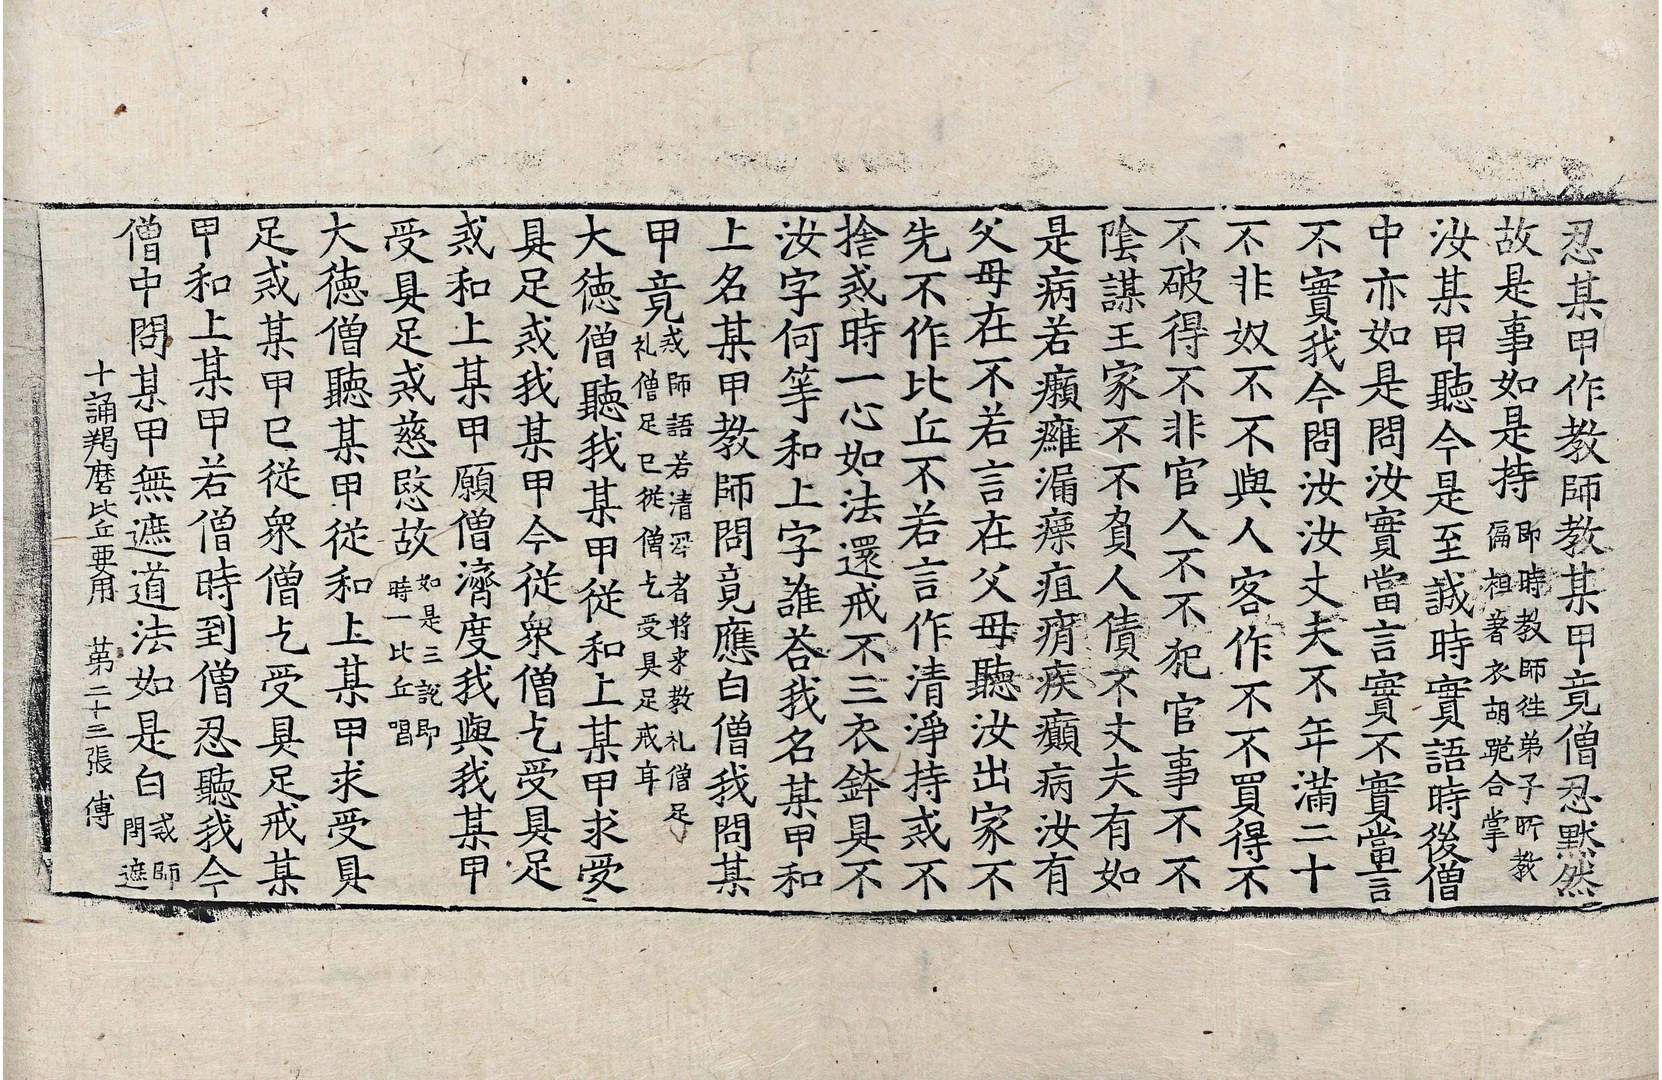 忍某甲作教師教某甲竟僧忍默然
故是事如是持即時教師往弟子所教偏袒著衣胡跪合掌
汝某甲聽今是至誠時實語時後僧
中亦如是問汝實當言實不實當言
不實我今問汝汝丈夫不年滿二十
不非奴不不與人客作不不買得不
不破得不非官人不不犯官事不不
陰謀王家不不負人債不丈夫有如
是病若癩癰漏瘭疽痟疾癲病汝有
父母在不若言在父母聽汝出家不
先不作比丘不若言作清淨持戒不
捨戒時一心如法還戒不三衣鉢具不
汝字何等和上字誰答我名某甲和
上名某甲教師問竟應白僧我問某
甲竟戒師語若清淨者將來教礼僧足礼僧足已從僧乞受具足戒耳
大德僧聽我某甲從和上某甲求受
具足戒我某甲今從衆僧乞受具足
戒和上某甲願僧濟度我與我某甲
受具足戒慈愍故如是三說即時一比丘唱
大德僧聽某甲從和上某甲求受具
足戒某甲已從衆僧乞受具足戒某
甲和上某甲若僧時到僧忍聽我今
僧中問某甲無遮道法如是白戒師問遮
十誦羯磨比丘要用　第二十三張　傅